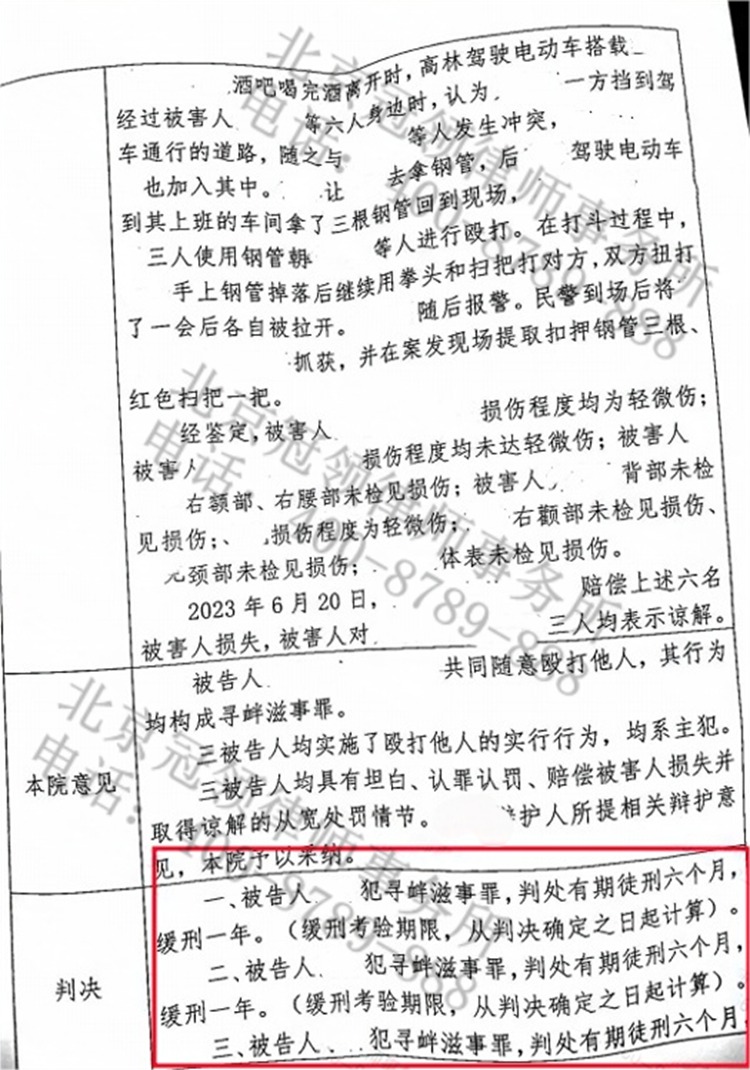 酒吧喝完酒离开时，高林驾驶电动车搭载
经过被害人 等六人身边时，认为 一方挡到驾
车通行的道路，随之与 等人发生冲突，
也加入其中。 让 去拿钢管，后 驾驶电动车
到其上班的车间拿了三根钢管回到现场，
三人使用钢管朝 等人进行殴打。在打斗过程中，
手上钢管掉落后继续用拳头和扫把打对方，双方扭打
了一会后各自被拉开。 随后报警。民警到场后将
抓获，并在案发现场提取扣押钢管三根、
红色扫把一把。
经鉴定，被害人 损伤程度均为轻微伤；
被害人 损伤程度均未达轻微伤；被害人
右颞部、右腰部未检见损伤；被害人 背部未检
见损伤； 损伤程度为轻微伤； 右颧部未检见损伤、
颈部未检见损伤； 体表未检见损伤。
2023年6月20日， 赔偿上述六名
被害人损失，被害人对 三人均表示谅解。
本院意见
被告人 共同随意殴打他人，其行为
均构成寻衅滋事罪。
三被告人均实施了殴打他人的实行行为，均系主犯。
三被告人均具有坦白、认罪认罚、赔偿被害人损失并
取得谅解的从宽处罚情节。 辩护人所提相关辩护意
见，本院予以采纳。
判决
一、被告人 犯寻衅滋事罪，判处有期徒刑六个月，
缓刑一年。（缓刑考验期限，从判决确定之日起计算）。
二、被告人 犯寻衅滋事罪，判处有期徒刑六个月，
缓刑一年。（缓刑考验期限，从判决确定之日起计算）。
三、被告人 犯寻衅滋事罪，判处有期徒刑六个月，
北京冠领律师事务所
电话：400-8789-888
北京冠领律师事务所
电话：400-8789-888
北京冠领律师事务所
电话：400-8789-888